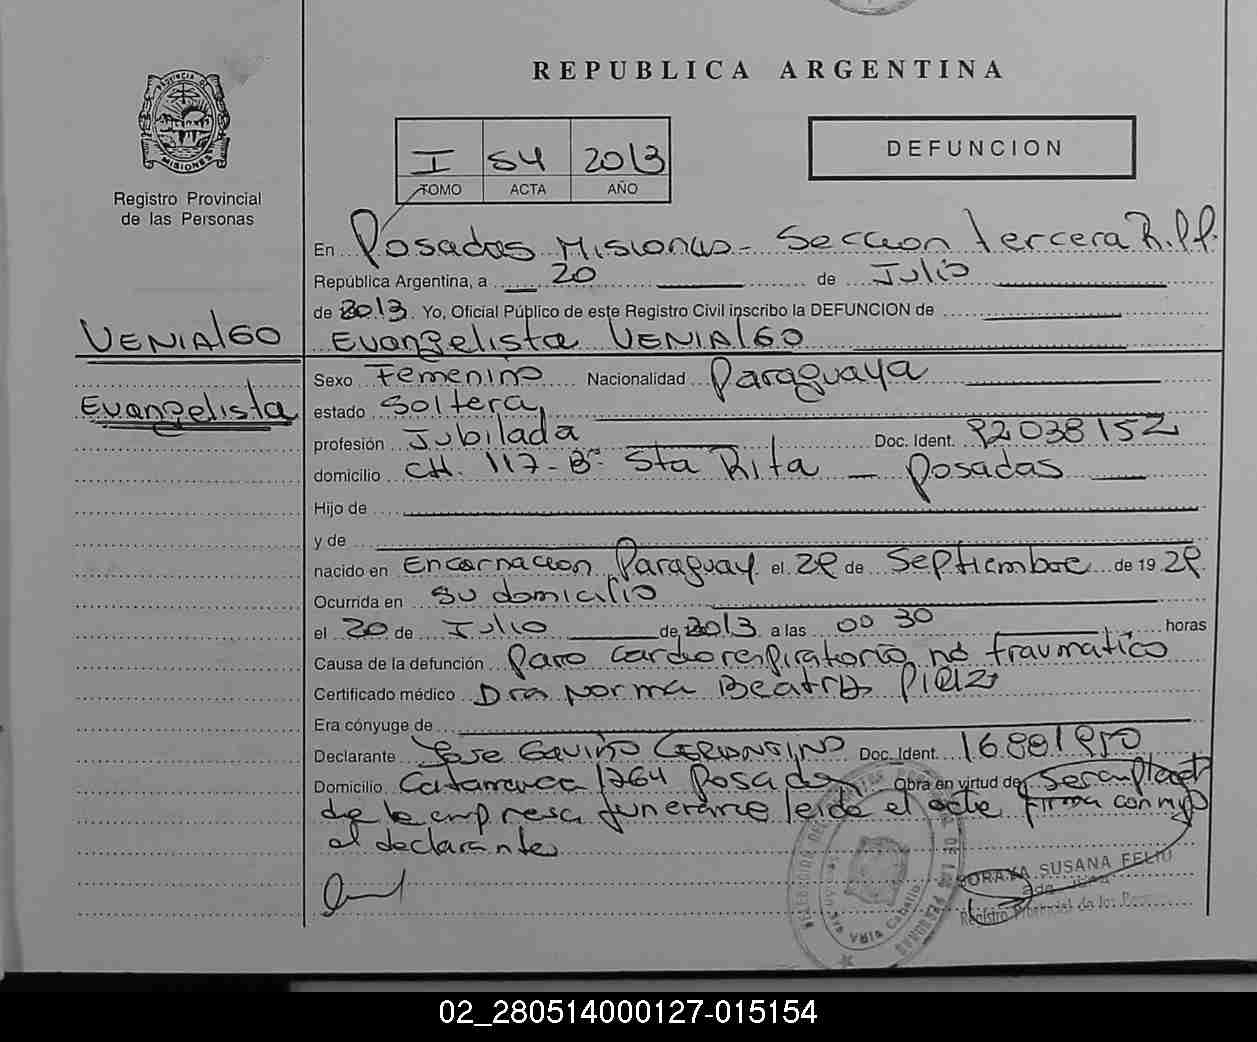 REPUBLICA ARGENTINA
PROVINCIA DE MISIONES
Registro Provincial
de las Personas
I 54 2013
TOMO ACTA AÑO
DEFUNCION
En Posadas Misiones - Seccion tercera R.P.P.
República Argentina, a 20 de Julio
de 2013. Yo, Oficial Público de este Registro Civil inscribo la DEFUNCION de
VENIALGO
Evangelista VENIALGO
Evangelista
Sexo Femenino Nacionalidad Paraguaya
estado Soltera
profesión Jubilada Doc. Ident. 92038152
domicilio CH. 117 - Bº Sta Rita - Posadas
Hijo de
y de
nacido en Encarnacion Paraguay el 29 de Septiembre de 19 29
Ocurrida en su domicilio
el 20 de Julio de 2013 a las 00 30 horas
Causa de la defunción Paro cardiorespiratorio no traumatico
Certificado médico Dra Norma Beatriz
Era cónyuge de
Declarante Jose Gaviño Doc. Ident.
Domicilio Catamarca 1764 Posadas Obra en virtud de Ser empleado
de la empresa funeraria leida el acta firma conmigo
el declarante
SORAYA SUSANA FELIU
Registro Provincial de las Personas
02_280514000127-015154